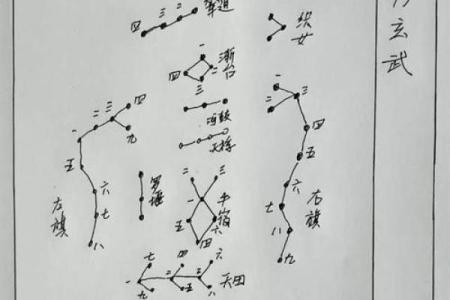 玄武
辇道
四
三
二
织女
渐台
一
四
三
河鼓
天桴
左旗
一
二
三
四
九
五
六
七
八
罗堰
牛宿
二
三
一
五
六
四
右旗
一
二
三
四
五
六
七
八
九
天田
七
一
四
二
三
六
九
五
八